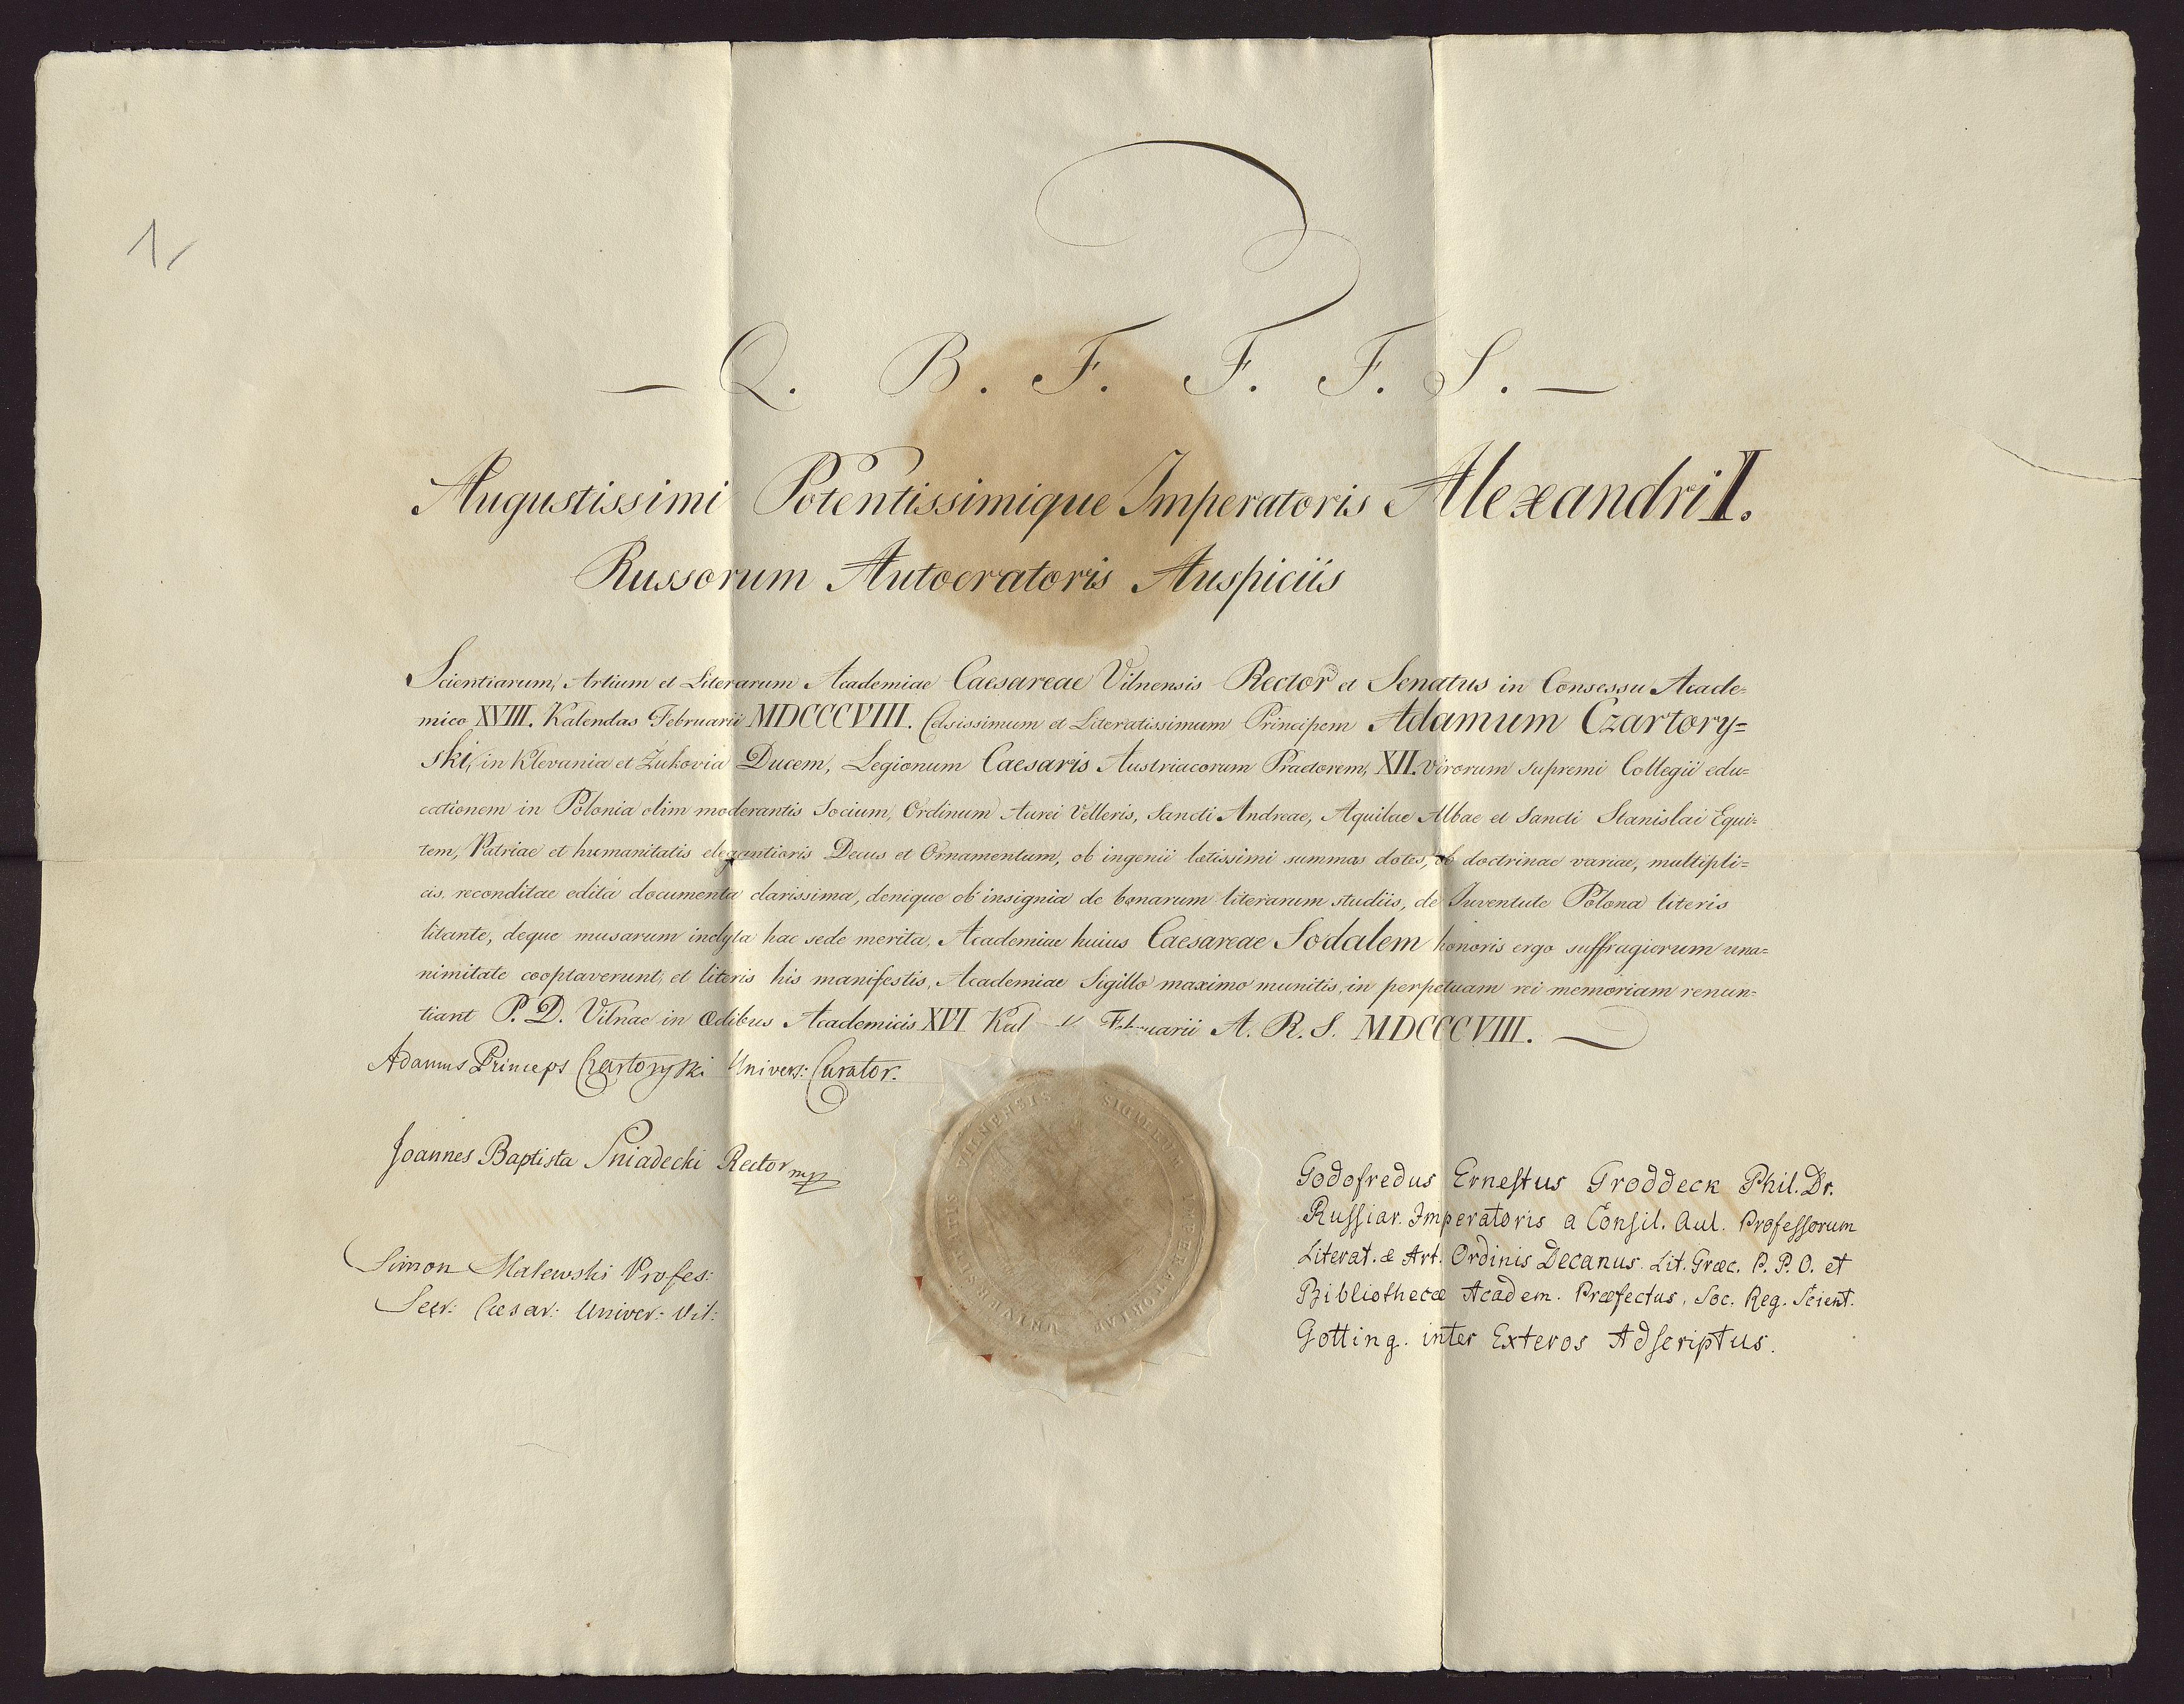 1
— Q. B. F. F. F. S. —
Augustissimi Potentissimique Imperatoris Alexandri I.
Russorum Autocratoris Auspiciis
Scientiarum, Artium et Literarum Academiae Caesareae Vilnensis Rector et Senatus in Consessu Acade=
mico XVIII. Kalendas Februarii MDCCCVIII. Celsissimum et Literatissimum Principem Adamum Czartory=
ski, in Klevania et Żukovia Ducem, Legionum Caesaris Austriacorum Praetorem, XII. virorum supremi Collegii edu=
cationem in Polonia olim moderantis Socium, Ordinum Aurei Velleris, Sancti Andreae, Aquilae Albae et Sancti Stanislai Equi=
tem, Patriae et humanitatis elegantioris Decus et Ornamentum, ob ingenii laetissimi summas dotes, ob doctrinae variae, multipli=
cis, reconditae edita documenta clarissima, denique ob insignia de bonarum literarum studiis, de Juventute Polona literis
litante, deque musarum inclyta hac sede merita, Academiae huius Caesareae Sodalem honoris ergo suffragiorum una=
nimitate cooptaverunt, et literis his manifestis, Academiae Sigillo maximo munitis, in perpetuam rei memoriam renun=
tiant P. D. Vilnae in ædibus Academicis XVI Kal Februarii A. R. S. MDCCCVIII.
Adamus Princeps Czartoryski Univers: Curator.
Joannes Baptista Sniadecki Rector mp
Simon Malewski Profes:
Secr: Cæsar: Univer: Vil:
SIGILLUM IMPERATORIAE UNIVERSITATIS VILNENSIS
Godofredus Ernestus Groddeck Phil. Dr.
Russiar. Imperatoris a Consil. Aul. Professorum
Literat. & Art. Ordinis Decanus. Lit. Græc. P. P. O. et
Bibliothecæ Academ. Præfectus, Soc. Reg. Scient.
Gotting. inter Exteros Adscriptus.